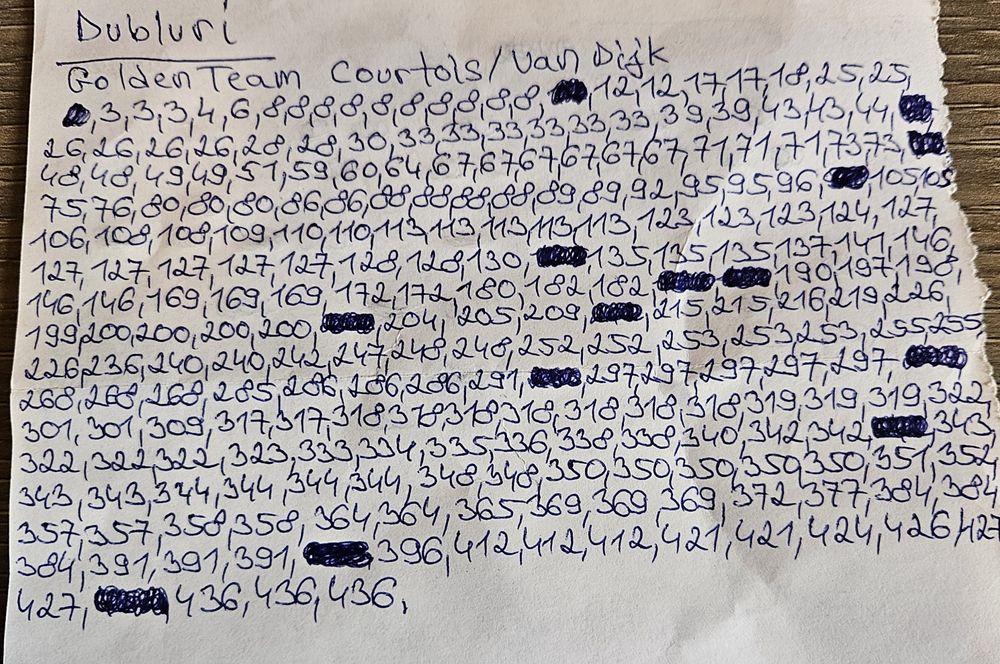 Dubluri
Golden Team Courtois/Van Dijk
3,3,3,4,6,8,8,8,8,8,8,8,8,8,8, 12,12,17,17,18,25,25,
26,26,26,26,28,28,30,33,33,33,33,33,33,39,39,43,43,44,
48,48,49,49,51,59,60,64,67,67,67,67,67,67,71,71,71,73,73,
75,76,80,80,80,86,86,88,88,88,88,88,89,89,92,95,95,96, 105,105
106,108,108,109,110,110,113,113,113,113,113,123,123,123,124,127,
127,127,127,127,127,128,128,130, 135,135,135,137,141,146,
146,146,169,169,169,172,172,180,182,182, 190,197,198,
199,200,200,200,200, 204,205,209, 215,215,216,219,226,
226,236,240,240,242,247,248,248,252,252,253,253,253,255,255
268,268,268,285,286,286,286,291, 297,297,297,297,297,
301,301,309,317,317,318,318,318,318,318,318,318,319,319,319,322
322,322,322,323,333,334,335,336,338,338,340,342,342, 343,
343,343,344,344,344,344,348,348,350,350,350,350,350,351,352
357,357,358,358,364,364,365,369,369,369,372,377,384,384
384,391,391,391, 396,412,412,412,421,421,424,426,427
427, 436,436,436,